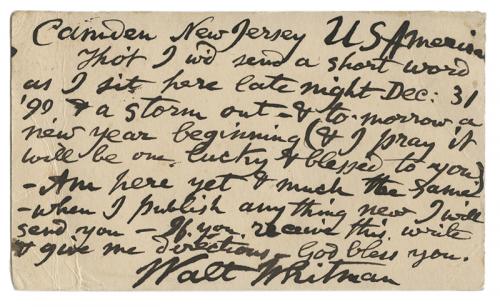 Camden New Jersey US America
Tho't I w'd send a short word
as I sit here late night Dec: 31
'90 & a storm out - & to-morrow a
new year beginning (& I pray it
will be one lucky & blessed to you)
- Am here yet & much the same
- when I publish any thing new I will
send you - If you receive this write
& give me directions - God bless you.
Walt Whitman